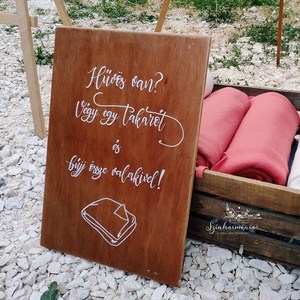 Hűvös van?
Végy egy takarót
és
bújj össze valakivel!
Színharmónia